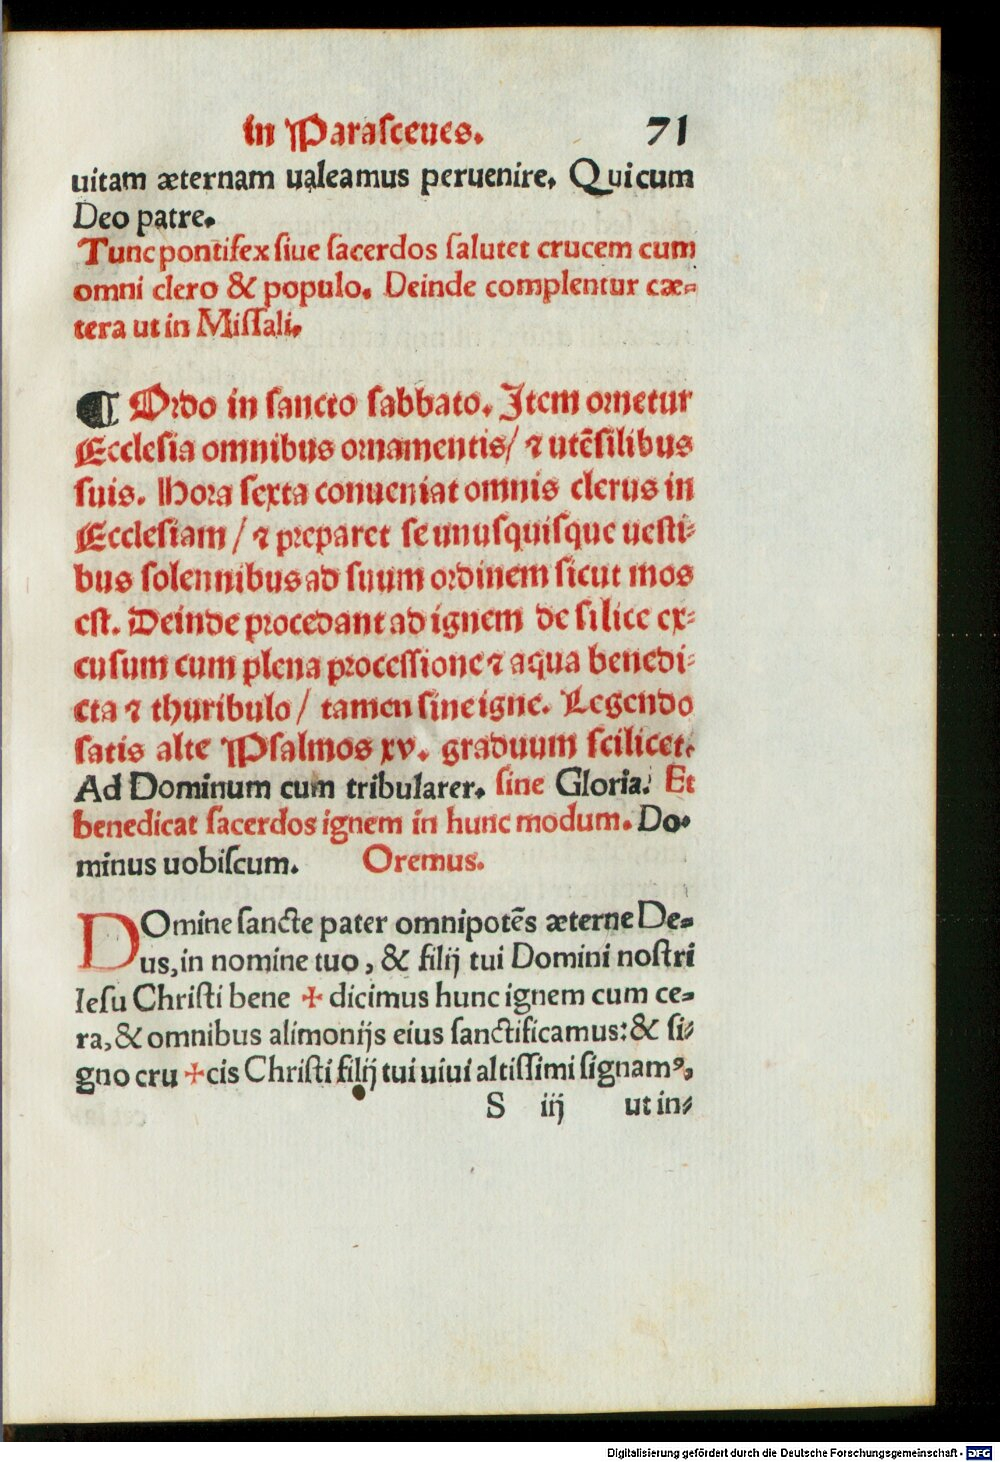 in Parasceues. 71
uitam æternam ualeamus peruenire. Qui cum
Deo patre.
Tunc pont̄ifex siue sacerdos salutet crucem cum
omni clero & populo. Deinde complentur cæ⸗
tera ut in Missali.
¶ Ordo in sancto sabbato. Item ornetur
Ecclesia omnibus ornamentis/ ⁊ utēsilibus
suis. Hora sexta conueniat omnis clerus in
Ecclesiam / ⁊ preparet se unusquisque uesti⸗
bus solennibus ad suum ordinem sicut mos
est. Deinde procedant ad ignem de silice ex⸗
cusum cum plena processione ⁊ aqua benedi⸗
cta ⁊ thuribulo / tamen sine igne. Legendo
satis alte Psalmos xv. graduum scilicet.
Ad Dominum cum tribularer. sine Gloria. Et
benedicat sacerdos ignem in hunc modum. Do⸗
minus uobiscum. Oremus.
DOmine sancte pater omnipotēs æterne De⸗
us, in nomine tuo, & filij tui Domini nostri
Iesu Christi bene ✢ dicimus hunc ignem cum ce⸗
ra, & omnibus alimonijs eius sanctificamus: & si⸗
gno cru ✢ cis Christi filij tui uiui altissimi signamꝰ,
S iij ut in⸗
Digitalisierung gefördert durch die Deutsche Forschungsgemeinschaft - DFG